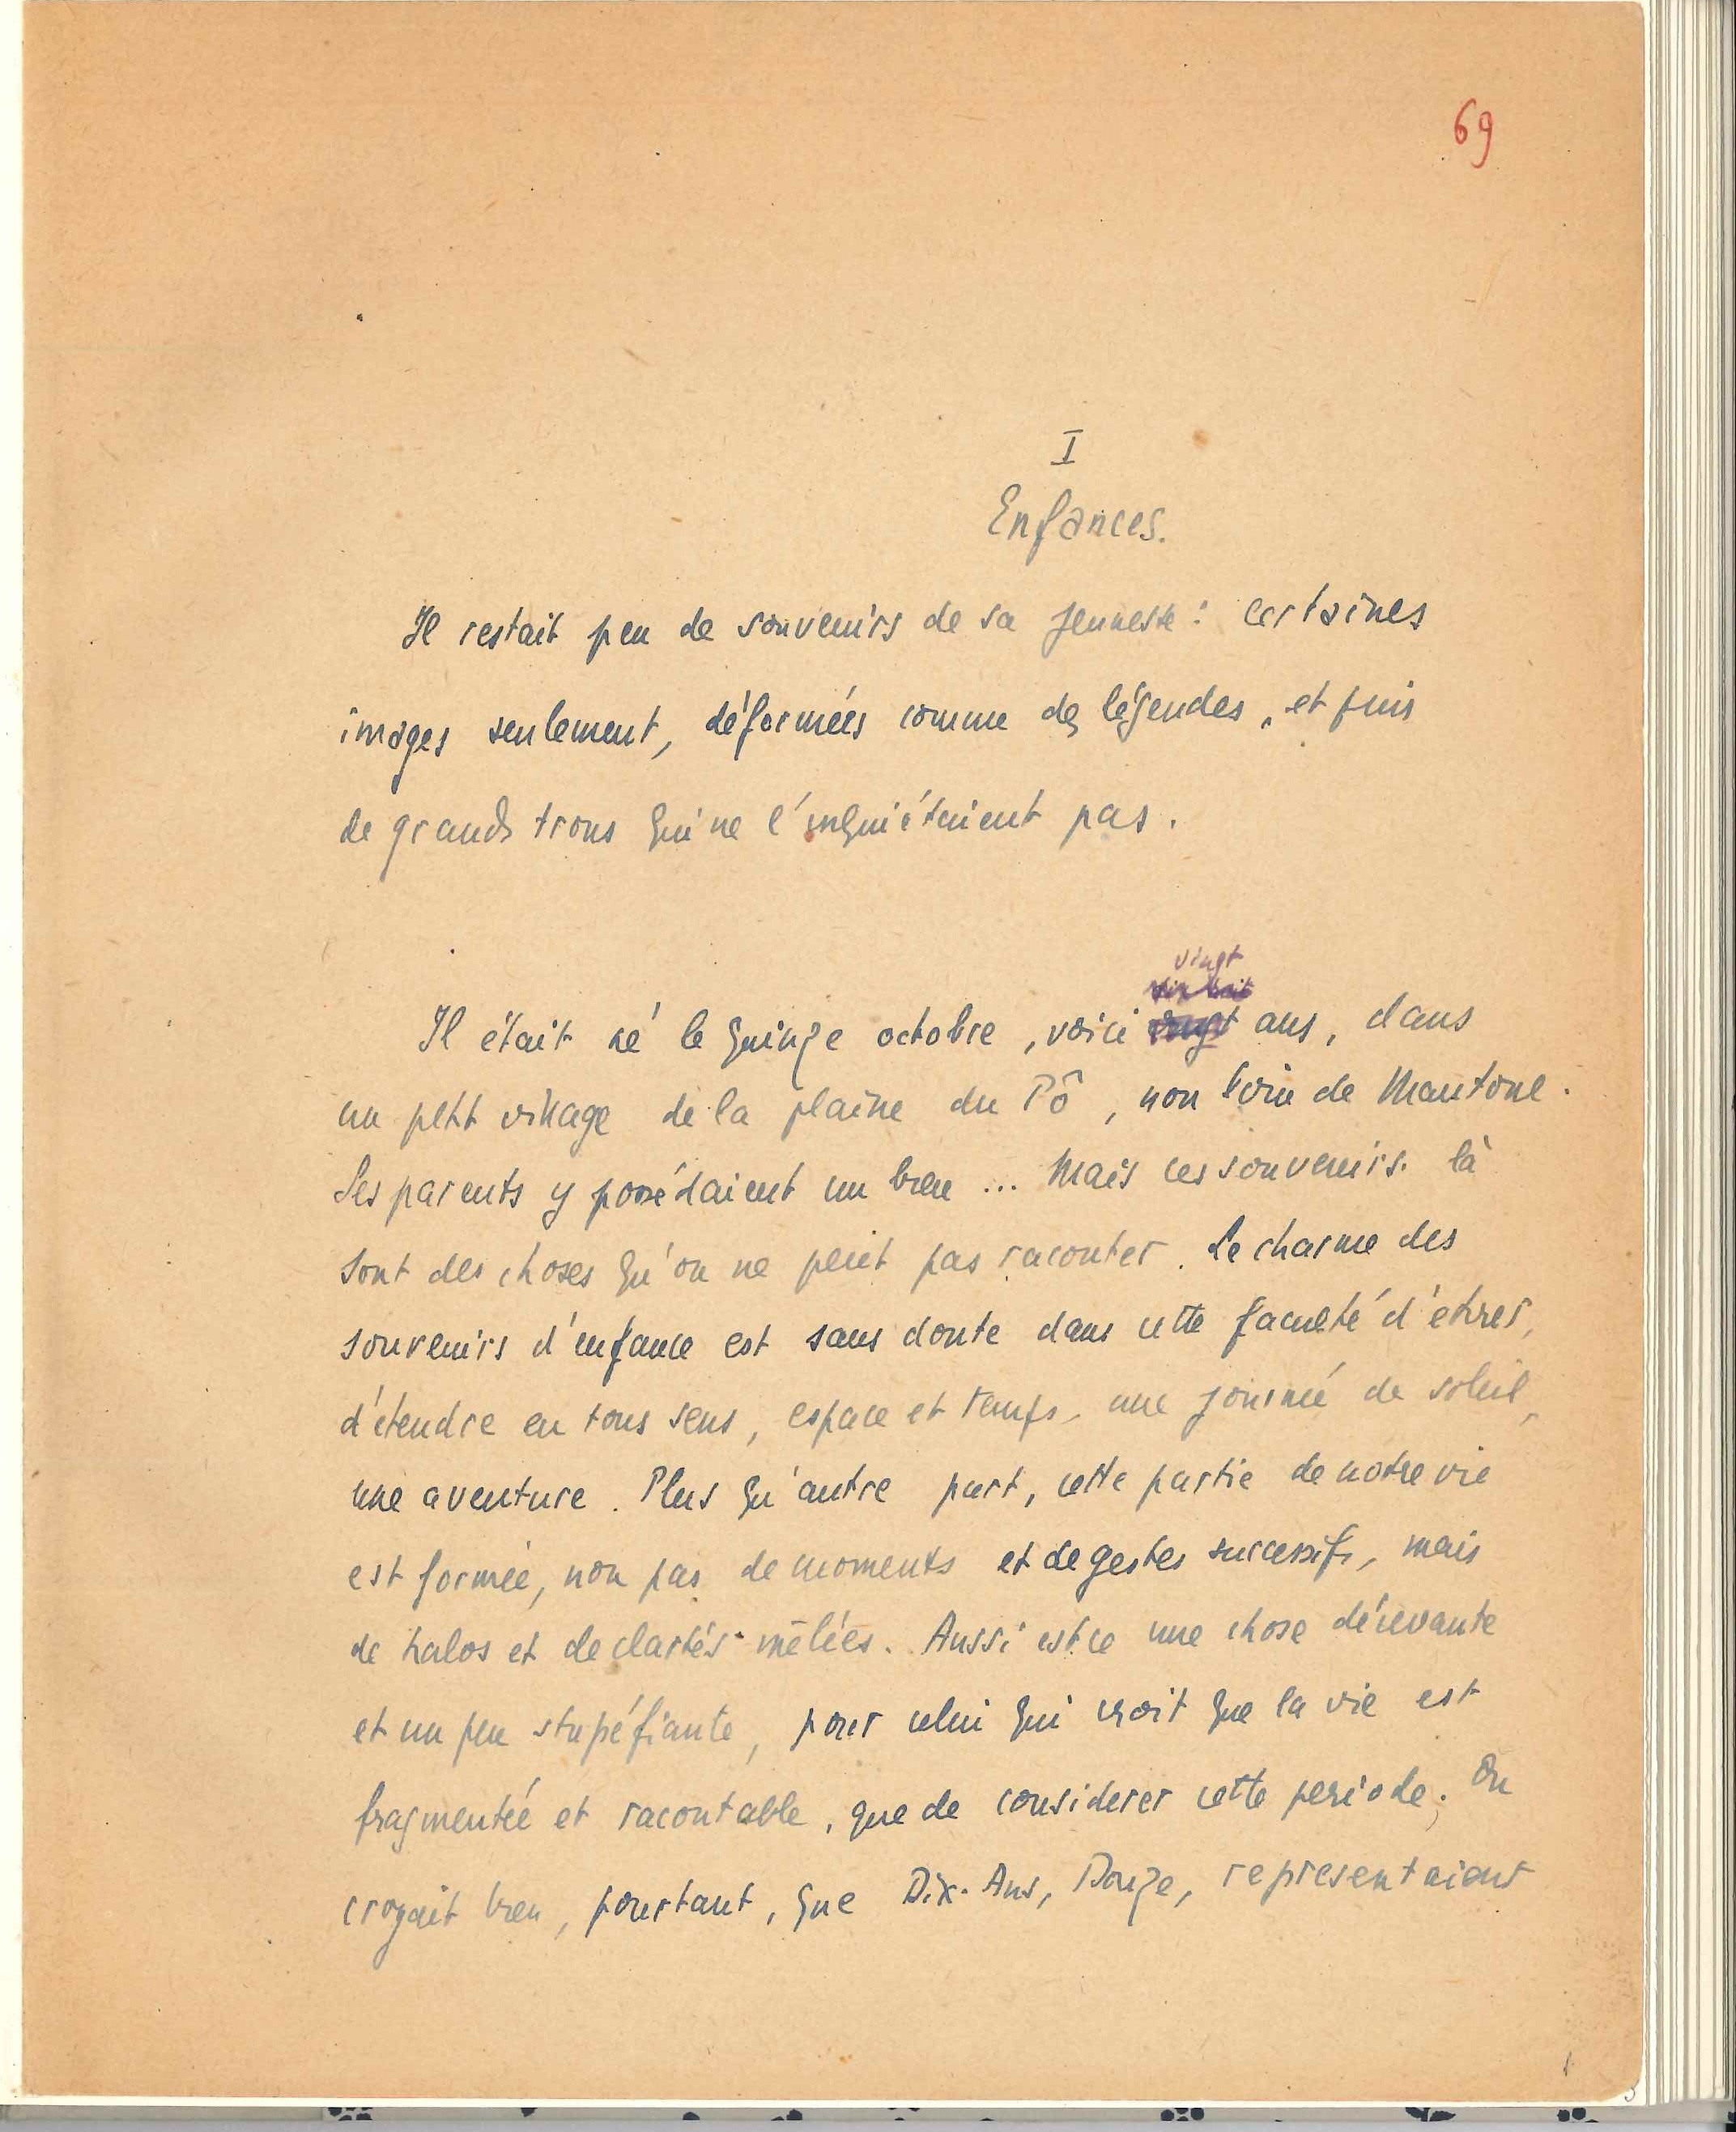 69
I
Enfances.
Il restait peu de souvenirs de sa jeunesse : certaines
images seulement, déformées comme des légendes, et puis
de grands trous qui ne l'inquiétaient pas.
vingt
dix huit
Il était né le quinze octobre, voici vingt ans, dans
un petit village de la plaine du Pô, non loin de Mantoue.
Ses parents y possédaient un bien ... Mais ces souvenirs là
sont des choses qu'on ne peut pas raconter. Le charme des
souvenirs d'enfance est sans doute dans cette faculté d'étirer,
d'étendre en tous sens, espace et temps, une journée de soleil,
une aventure. Plus qu'autre part, cette partie de notre vie
est formée, non pas de moments et de gestes successifs, mais
de halos et de clartés mêlées. Aussi est-ce une chose décevante
et un peu stupéfiante, pour celui qui croit que la vie est
fragmentée et racontable, que de considerer cette periode. On
croyait bien, pourtant, que Dix-Ans, Douze, representaient